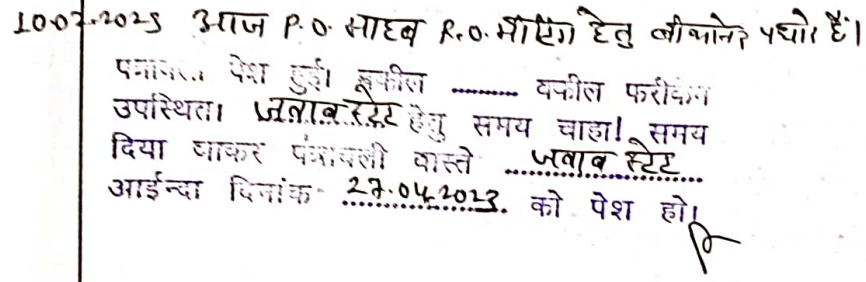 10.07.2023 आज P.O. साहब R.O. मीटिंग हेतु बीकानेर पधारे हैं।
पत्रावली पेश हुई। वकील ............ वकील फरीकैन
उपस्थित। जवाब स्टेट हेतु समय चाहा। समय
दिया जाकर पत्रावली वास्ते ...जवाब स्टेट...
आईन्दा दिनांक 27.04.2023. को पेश हो।